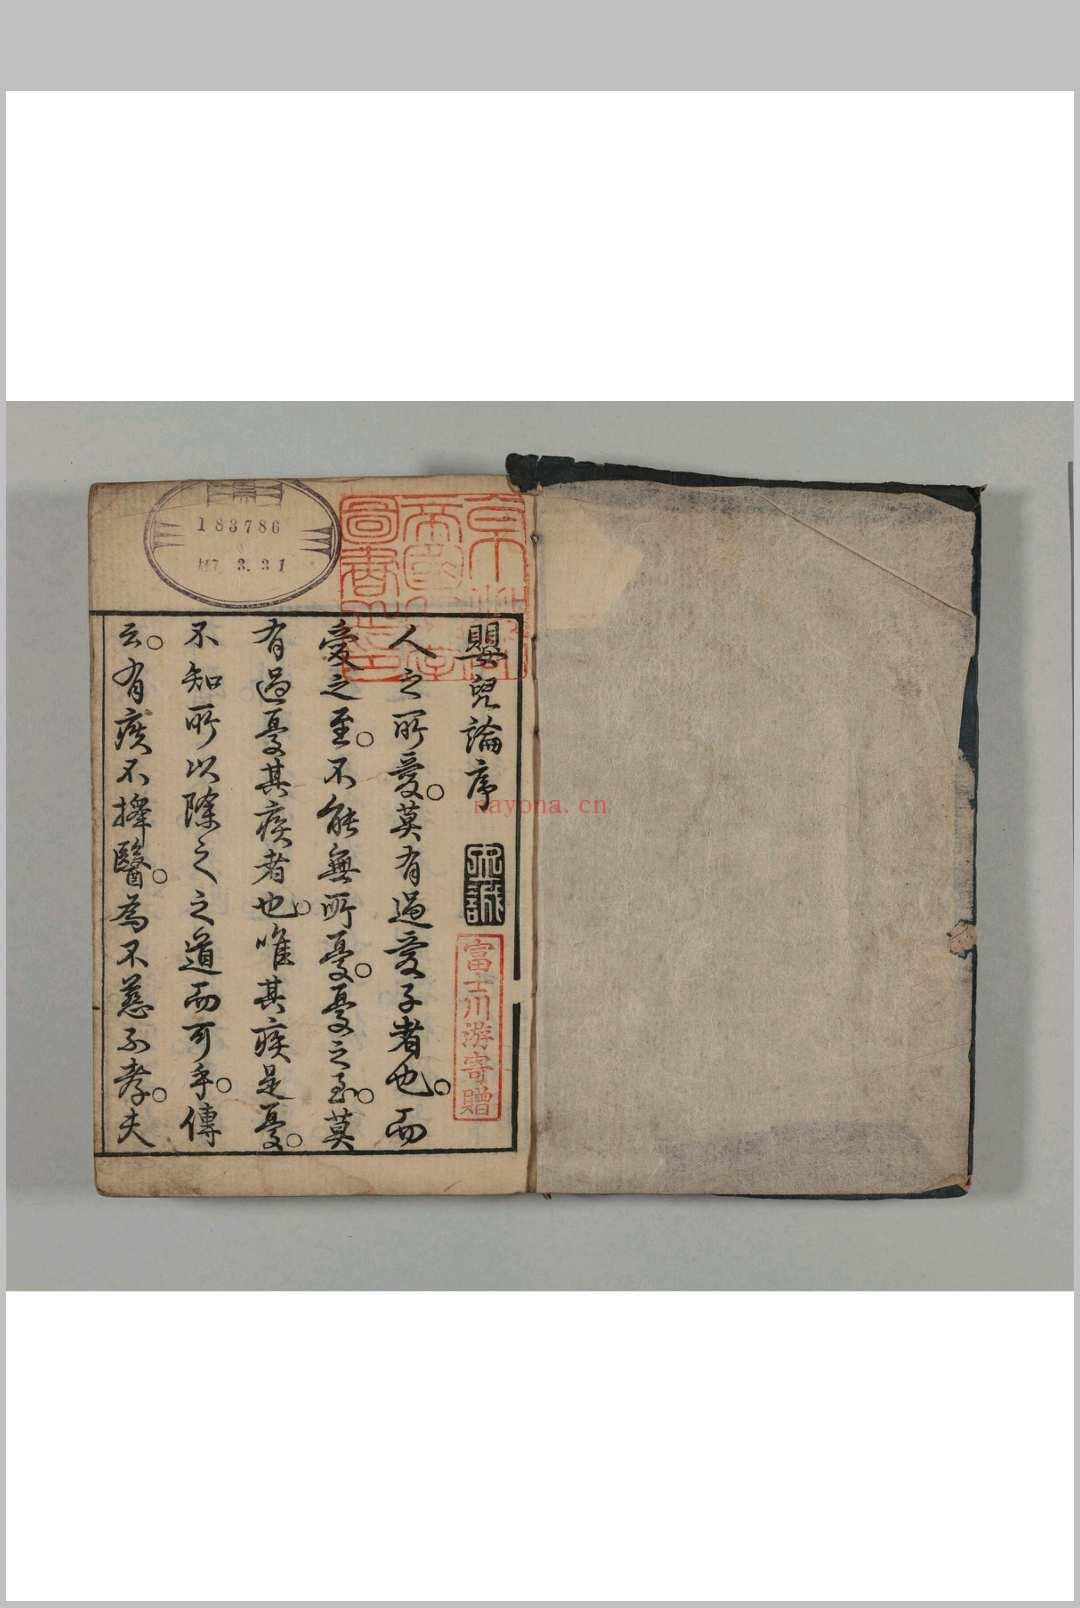 嬰兒論序
人之所愛。莫有過愛子者也。而
愛之至。不能無所憂。憂之至。莫
有過憂其疾者也。唯其疾是憂。
不知所以除之之道而可乎。傳
云。有疾不擇醫。為不慈不孝。夫
富士川游寄贈
京都
帝國大學
圖書之印
183786
大正7. 3. 31
nayona.cn